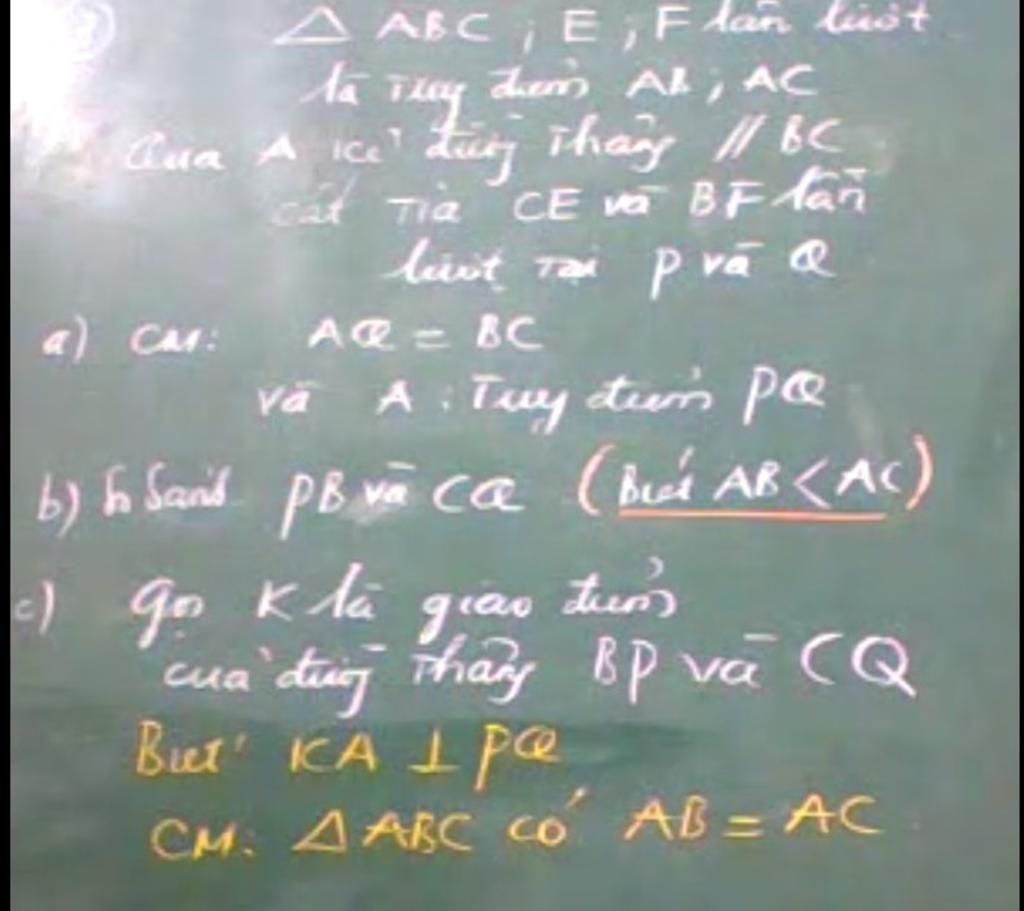 △ ABC ; E ; F lần lượt
là trung điểm AB ; AC
Qua A kẻ đường thẳng // BC
cắt Tia CE và BF lần
lượt Tại P và Q
a) CM: AQ = BC
và A : Trung điểm PQ
b) So Sánh PB và CQ (Biết AB < AC)
c) Gọi K là giao điểm
của đường thẳng BP và CQ
Biết KA ⊥ PQ
CM: △ ABC có AB = AC